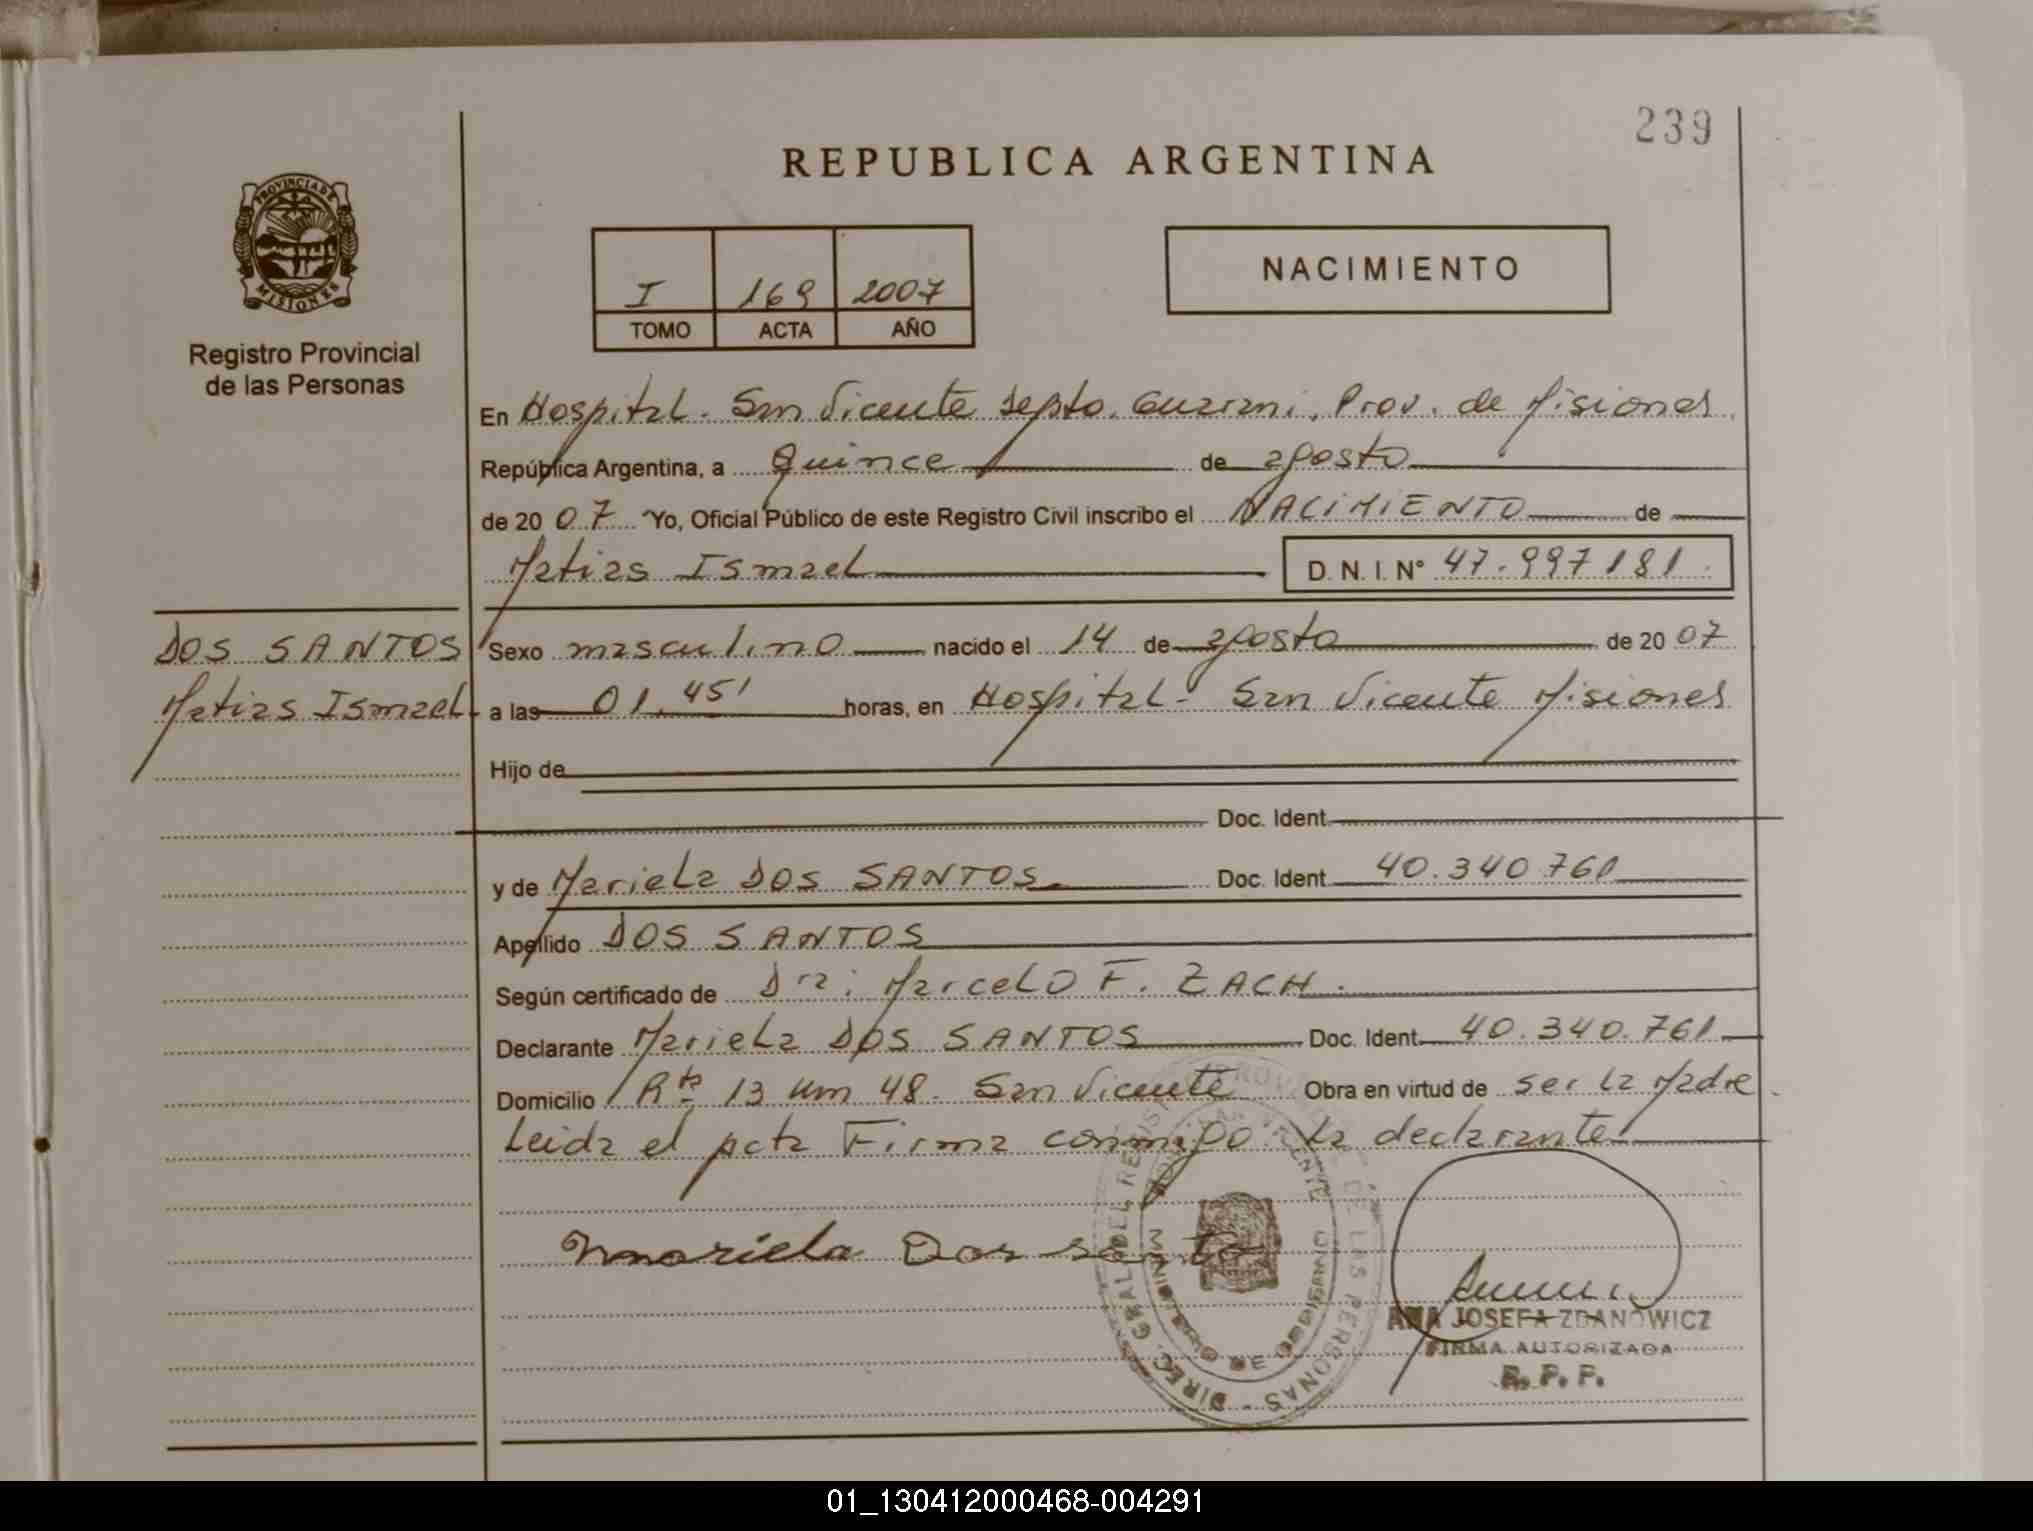 239
REPUBLICA ARGENTINA
PROVINCIA DE
MISIONES
Registro Provincial
de las Personas
NACIMIENTO
I 169 2007
TOMO ACTA AÑO
En Hospital. San Vicente Depto. Guarani, Prov. de Misiones
República Argentina, a Quince de agosto
de 20 07 Yo, Oficial Público de este Registro Civil inscribo el NACIMIENTO de
Matias Ismael D. N. I. N° 47.997181
DOS SANTOS
Matias Ismael
Sexo masculino nacido el 14 de agosto de 20 07
a las 01.45' horas, en Hospital - San Vicente Misiones
Hijo de
Doc. Ident.
y de Mariela DOS SANTOS Doc. Ident 40.340.761
Apellido DOS SANTOS
Según certificado de Dra: Marcelo F. ZACH.
Declarante Mariela DOS SANTOS Doc. Ident. 40.340.761
Domicilio Rta 13 km 48. San Vicente Obra en virtud de ser la Madre
Leida el acta Firma conmigo la declarante
Mariela Dos santo
DIREC. GRAL. DEL REGISTRO PROV. DE LAS PERSONAS
ANA JOSEFA ZDANOWICZ
FIRMA AUTORIZADA
R. P. P.
01_130412000468-004291